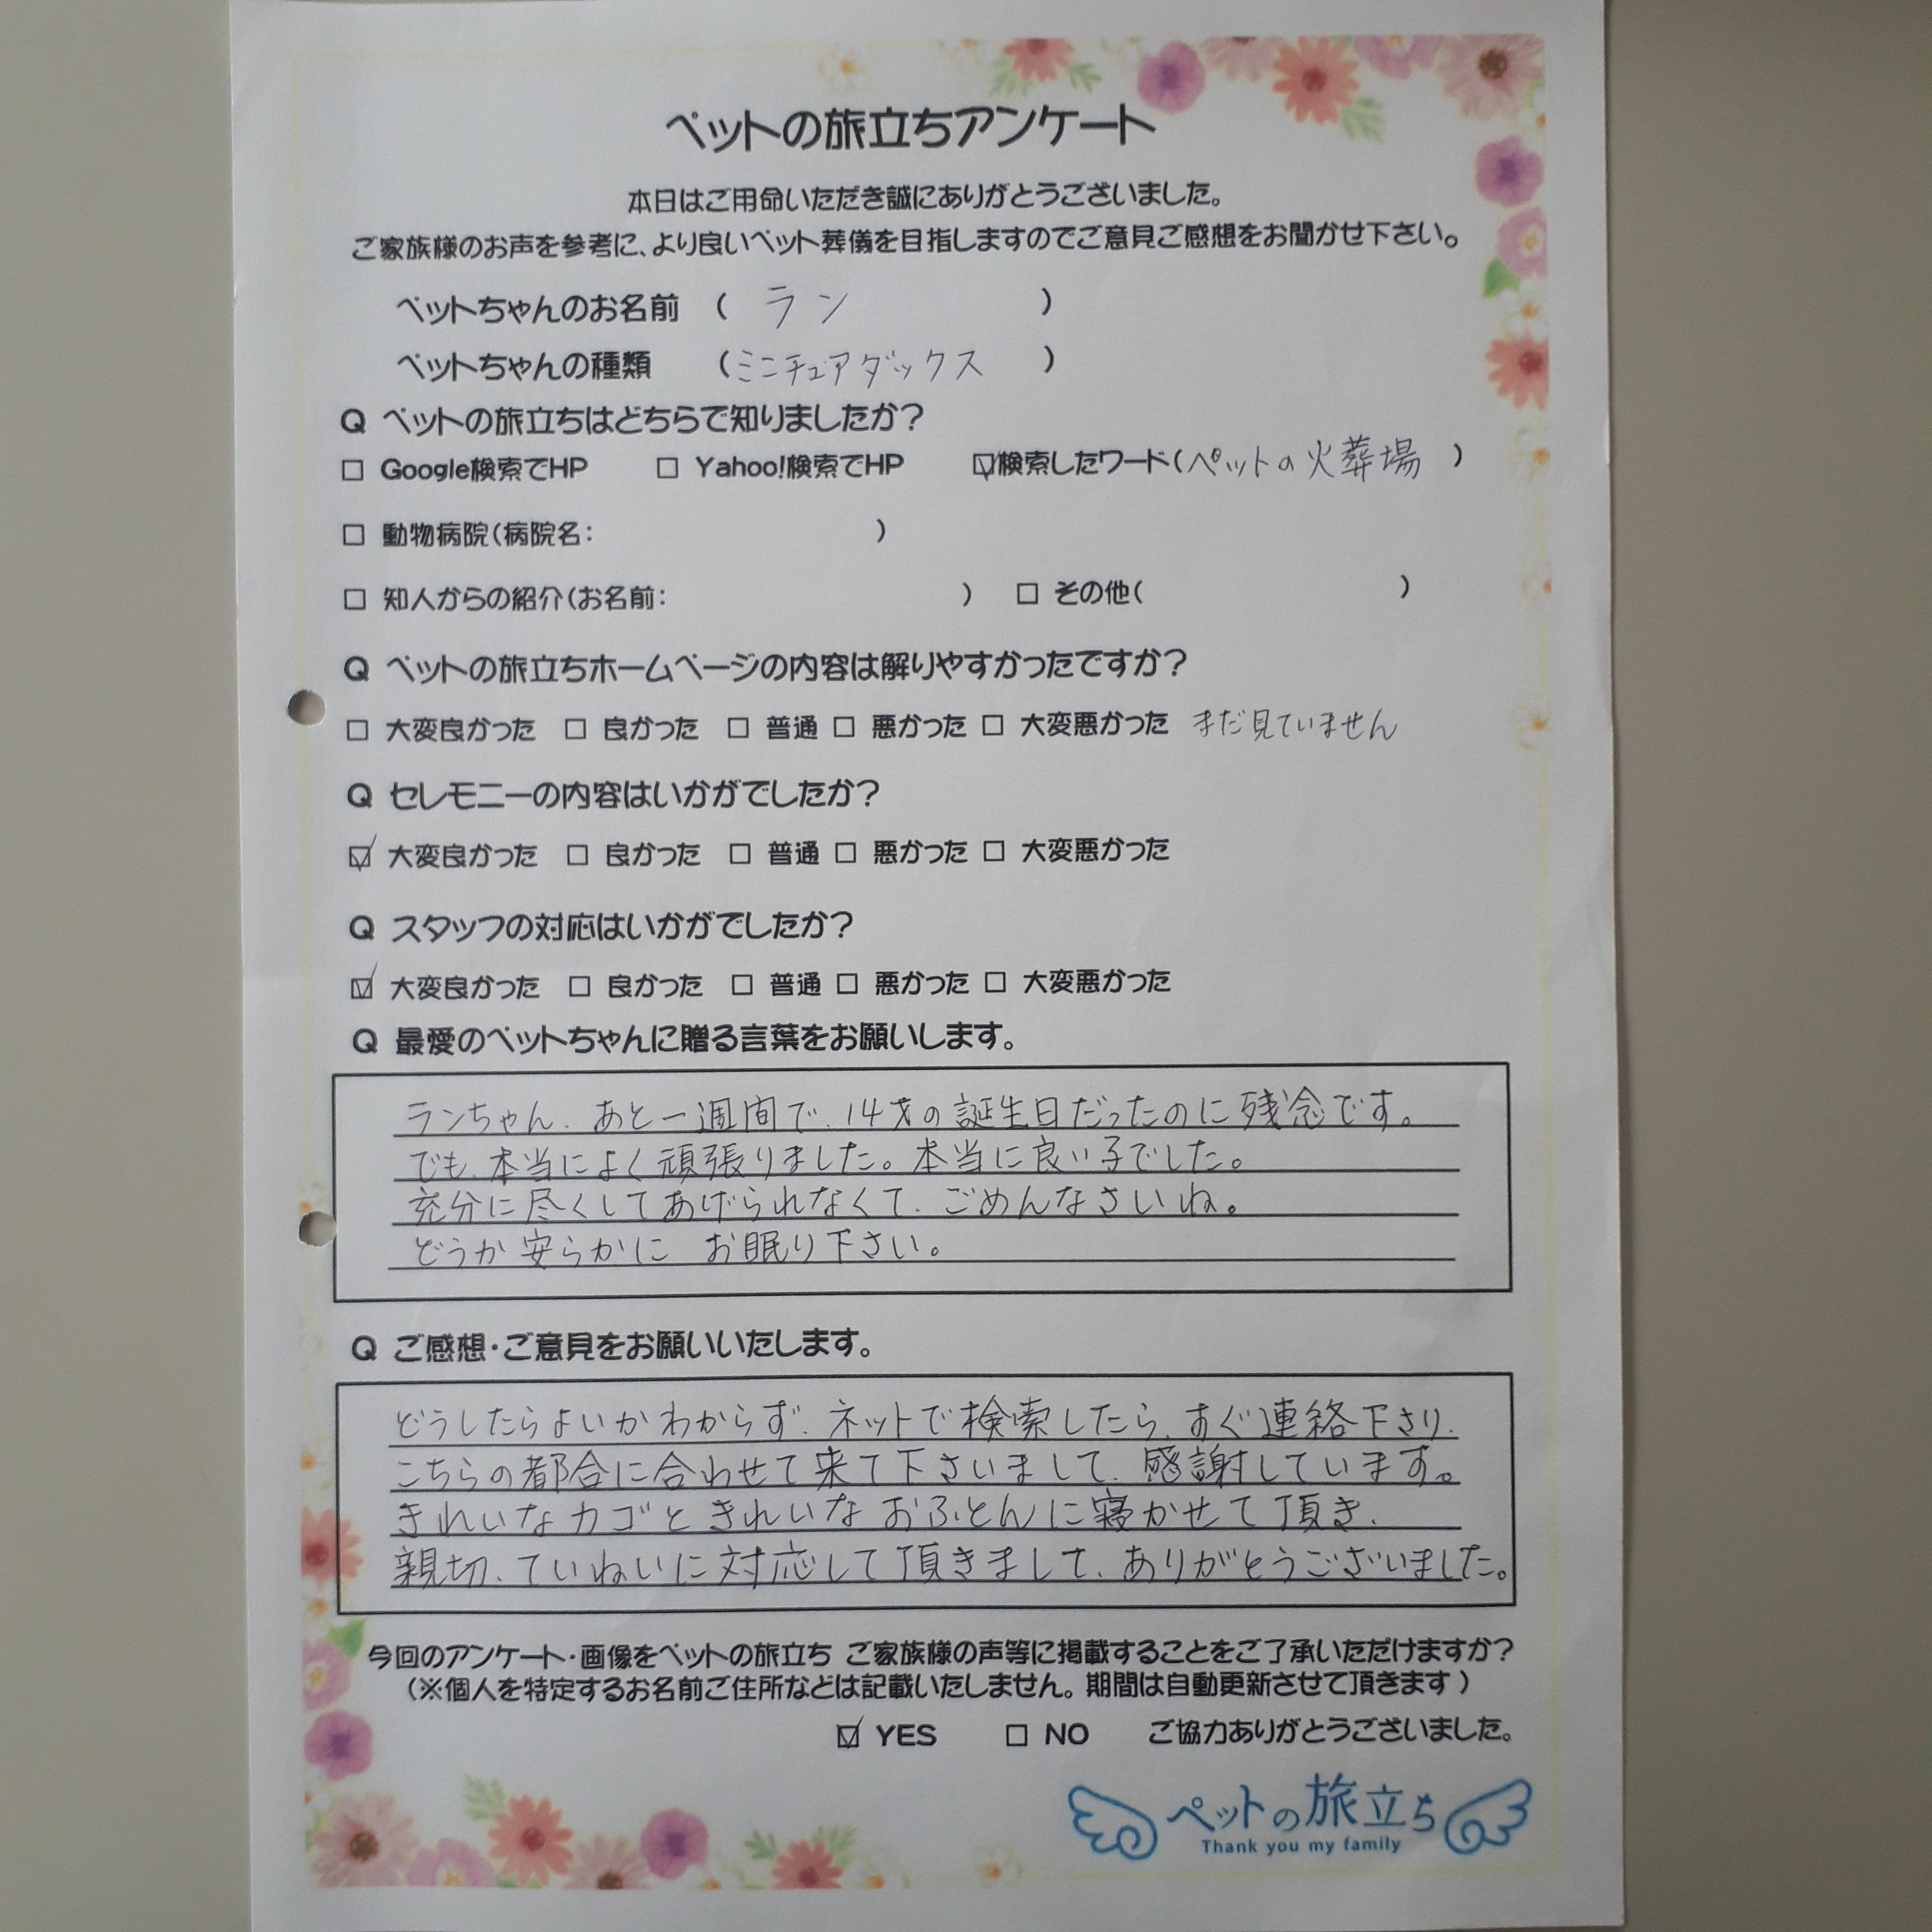 ペットの旅立ちアンケート
本日はご用命いただき誠にありがとうございました。
ご家族様のお声を参考に、より良いペット葬儀を目指しますのでご意見ご感想をお聞かせ下さい。
ペットちゃんのお名前 ( ラン )
ペットちゃんの種類 (ミニチュアダックス )
Q ペットの旅立ちはどちらで知りましたか?
□ Google検索でHP □ Yahoo!検索でHP ☑検索したワード(ペットの火葬場 )
□ 動物病院(病院名: )
□ 知人からの紹介(お名前: ) □ その他( )
Q ペットの旅立ちホームページの内容は解りやすかったですか?
□ 大変良かった □ 良かった □ 普通 □ 悪かった □ 大変悪かった まだ見ていません
Q セレモニーの内容はいかがでしたか?
☑ 大変良かった □ 良かった □ 普通 □ 悪かった □ 大変悪かった
Q スタッフの対応はいかがでしたか?
☑ 大変良かった □ 良かった □ 普通 □ 悪かった □ 大変悪かった
Q 最愛のペットちゃんに贈る言葉をお願いします。
ランちゃん、あと一週間で、14才の誕生日だったのに残念です。
でも、本当によく頑張りました。本当に良い子でした。
充分に尽くしてあげられなくて、ごめんなさいね。
どうか安らかに お眠り下さい。
Q ご感想・ご意見をお願いいたします。
どうしたらよいかわからず、ネットで検索したら、すぐ連絡下さり、
こちらの都合に合わせて来て下さいまして、感謝しています。
きれいなカゴときれいなおふとんに寝かせて頂き、
親切、ていねいに対応して頂きまして、ありがとうございました。
今回のアンケート・画像をペットの旅立ち ご家族様の声等に掲載することをご了承いただけますか?
(※個人を特定するお名前ご住所などは記載いたしません。期間は自動更新させて頂きます)
☑ YES □ NO ご協力ありがとうございました。
ペットの旅立ち
Thank you my family